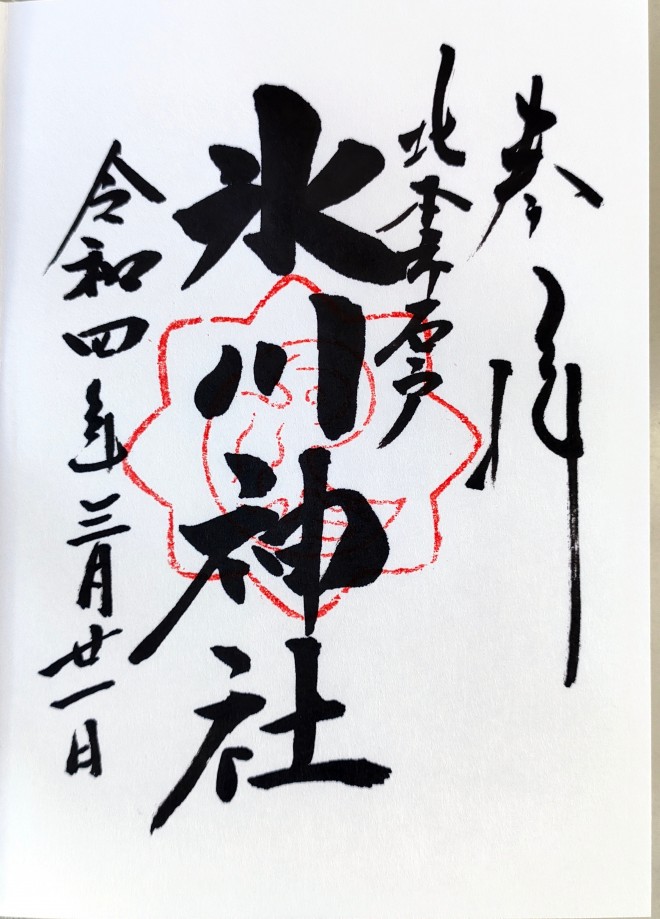 参拝
北本市石戸
氷川神社
令和四年三月廿一日